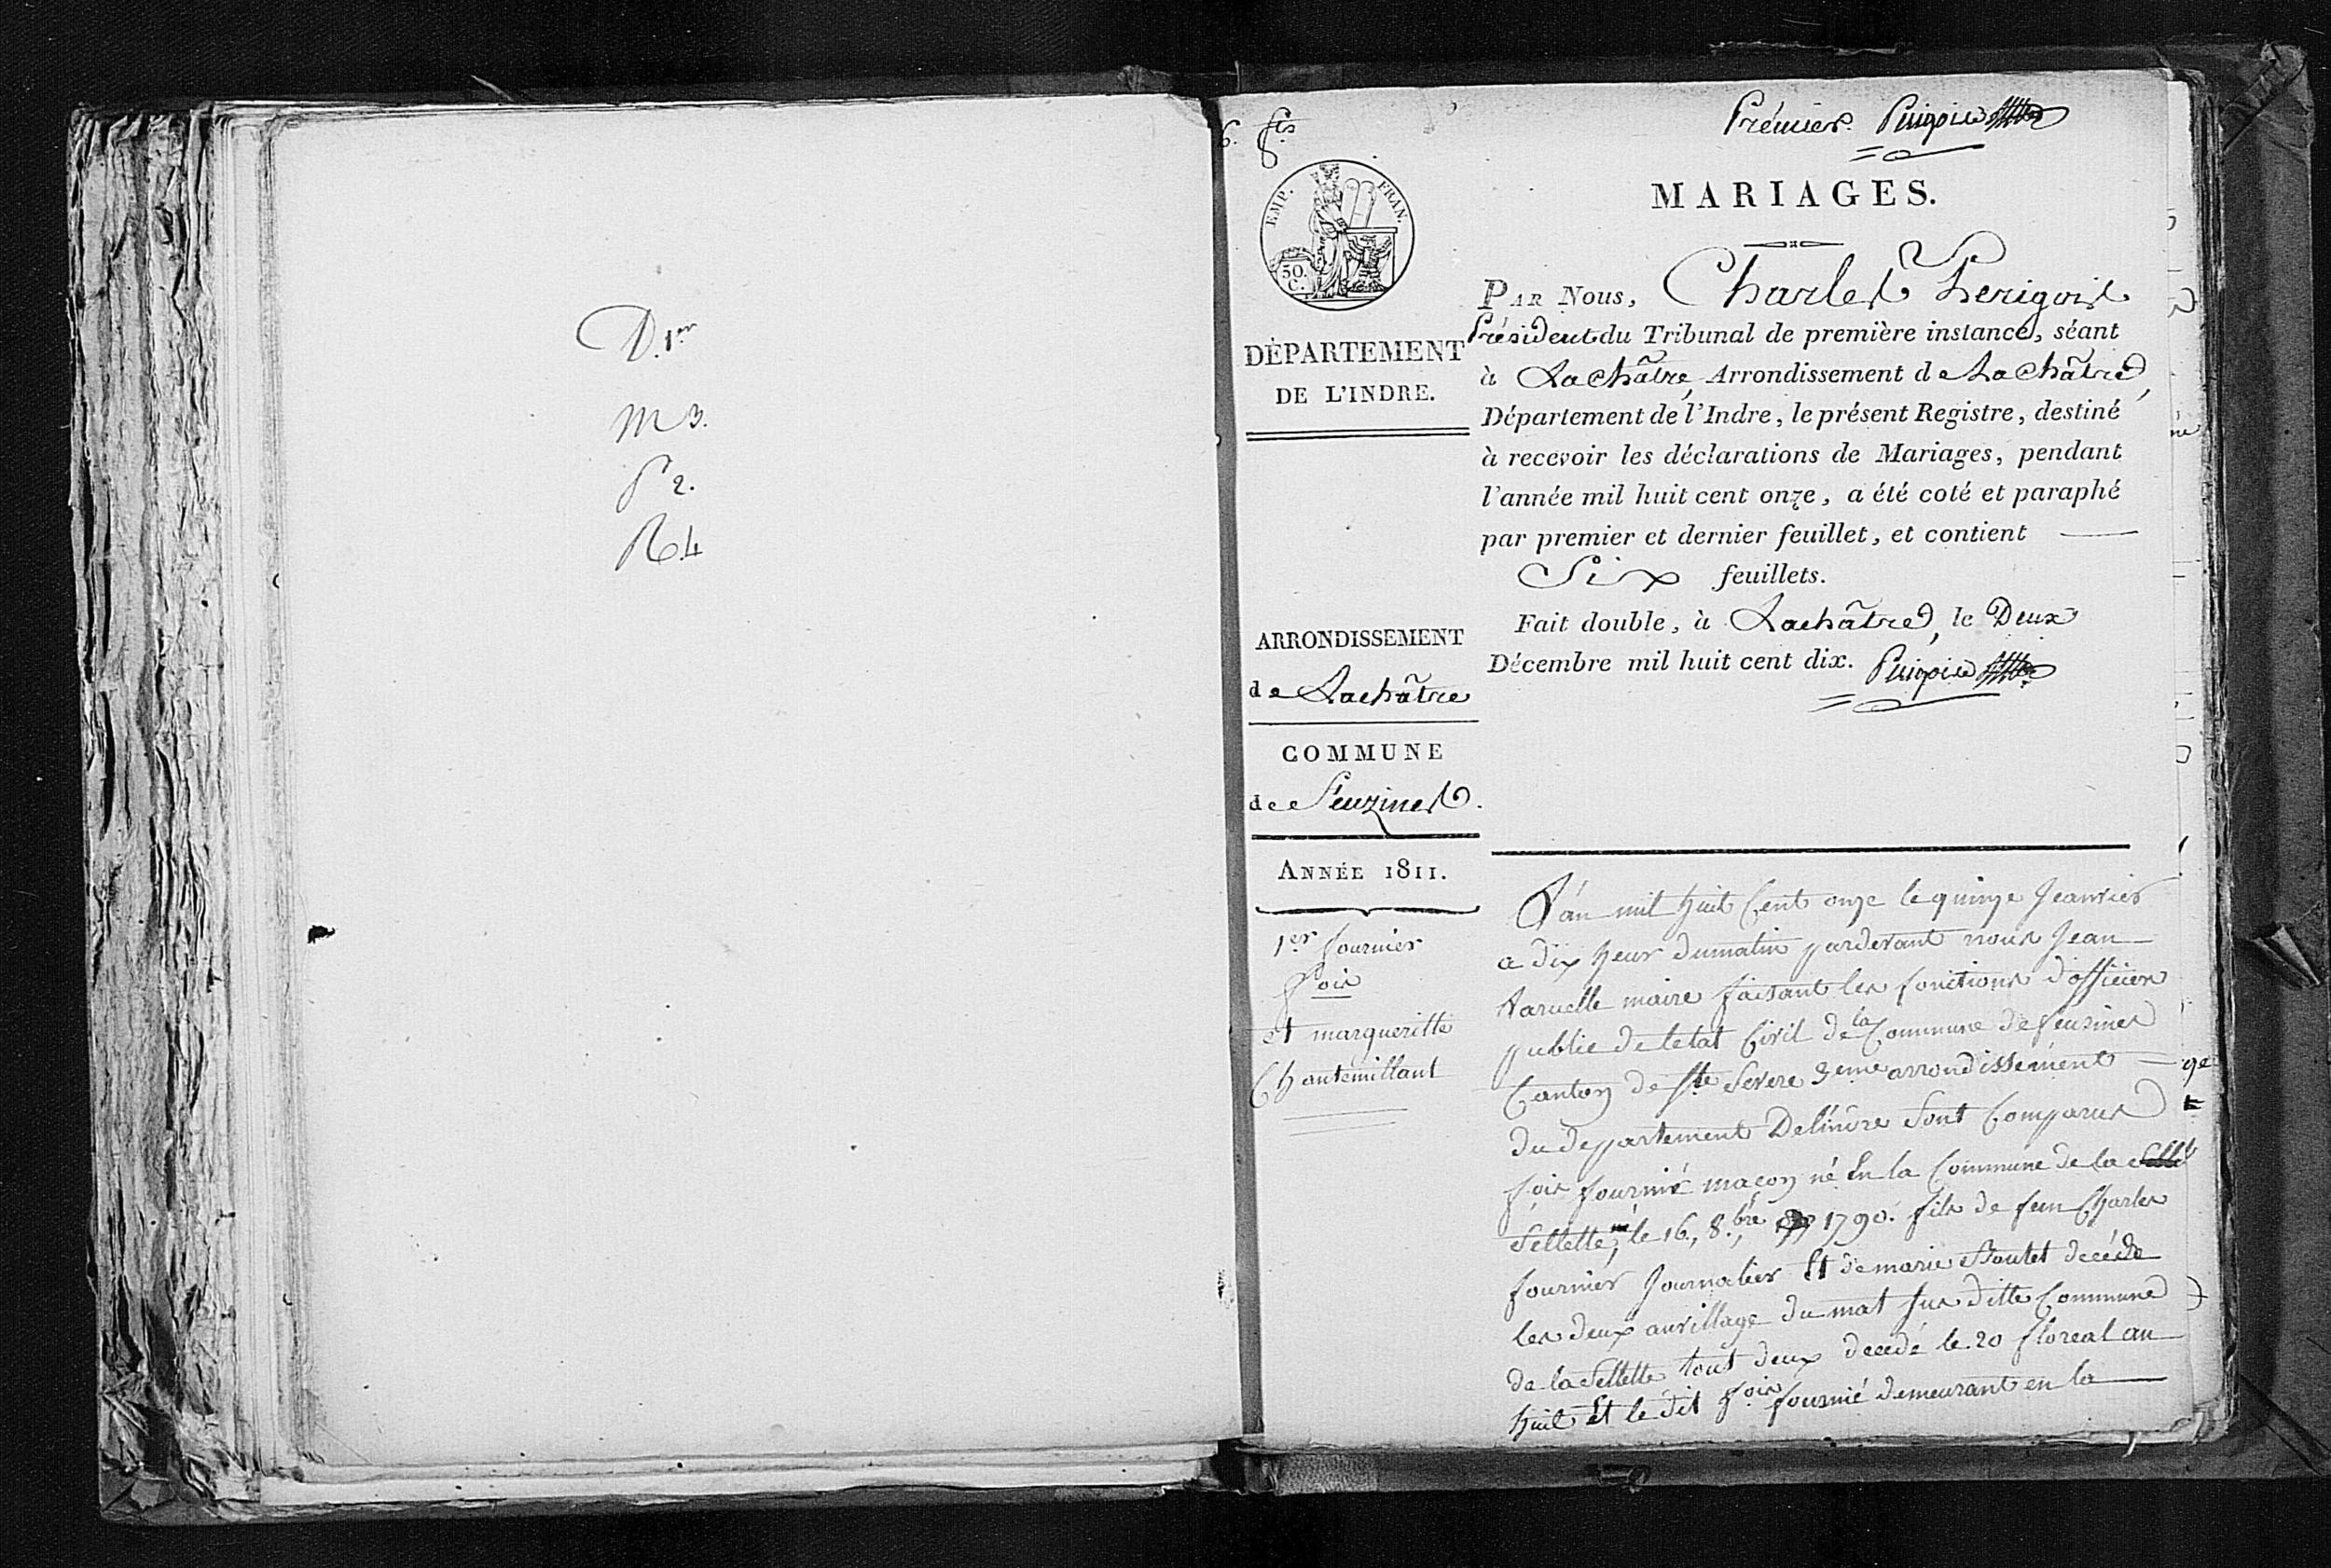 D. 1er
M 3.
P 2.
R 4
6. fts
Prémier. Périgois
EMP. FRAN.
50. C.
MARIAGES.
DÉPARTEMENT
DE L'INDRE.
PAR Nous, Charles Perigois
Président du Tribunal de première instance, séant
à Lachâtre, Arrondissement de Lachâtre,
Département de l'Indre, le présent Registre, destiné
à recevoir les déclarations de Mariages, pendant
l'année mil huit cent onze, a été coté et paraphé
par premier et dernier feuillet, et contient
Six feuillets.
Fait double, à Lachâtre, le Deux
Décembre mil huit cent dix. Périgois
ARRONDISSEMENT
de Lachâtre
COMMUNE
de feuzines.
ANNÉE 1811.
1er fournier
fois
et margueritte
Chantemillant
L'án mil huit Cent onze le quinze Jeanvier
a dix heur dumatin pardevant nous Jean
maire faisant les fonctions d'officier
public de letat Civil de la Commune de feusines
Canton de Ste Severe 3eme arrondissement
du departement Delindre Sont Comparus
fois fournié maçon né En la Commune de la Selle
Sellette, né le 16, 8.bre 1790. fils de feu Charles
fournier Journalier Et de marie Boutet decéde
les deux auvillage du mat sus ditte Commune
de la Sellette tout deux decedé le 20 floreal an
huit Et le dit fois fournié demeurant en la